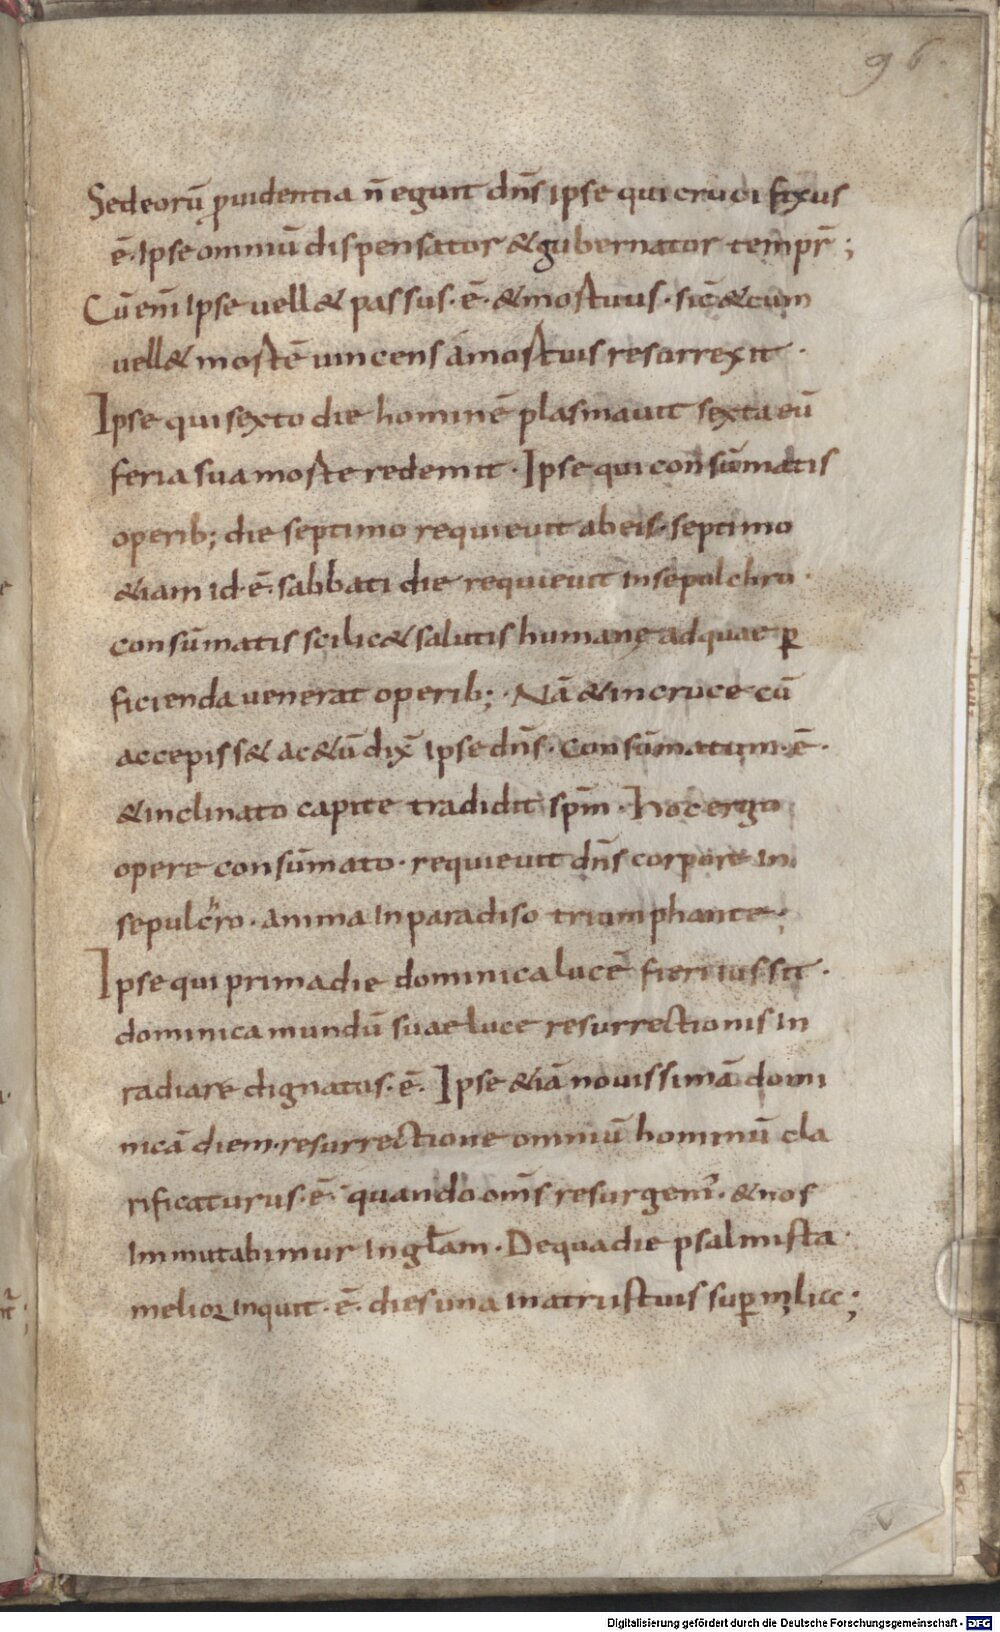 96.
Sed eorū ꝓuidentia n̄ eguit dn̄s ipse qui crucifixus
ē. Ipse omniū dispensator & gubernator tempr̄;
Cū em̄ ipse uell& passus. ē. & mortuus. sic̄ & cum
uell& mortē uincens á mortuis resurrexit.
Ipse qui sexto die hominē plasmauit sexta eū
feria sua morte redemit. Ipse qui consūmatis
operib; die septimo requieuit ab eis. septimo
&iam id. ē. sabbati die requieuit in sepulchro.
consūmatis scilic& salutis humanę ad quae ꝑ
ficienda uenerat operib;. Nā & in cruce cū
accepiss& ac&ū dix̄ ipse dn̄s. consūmatum. ē.
& inclinato capite tradidit sp̄m. Hoc ergo
opere consūmato. requieuit dn̄s corpore in
sepulcro. anima in paradiso triumphante;
Ipse qui prima die dominica lucē fieri iussit.
dominica mundū suae luce resurrectionis in
radiare dignatus. ē. Ipse &iā nouissimā domi
nicā diem. resurrectione omniū hominū cla
rificaturus. ē. quando om̄s resurgem'. & nos
Immutabimur in gl̄am. De qua die psalmista
melior inquit. ē. dies una in atriis tuis suꝑ mlia;
Digitalisierung gefördert durch die Deutsche Forschungsgemeinschaft - DFG